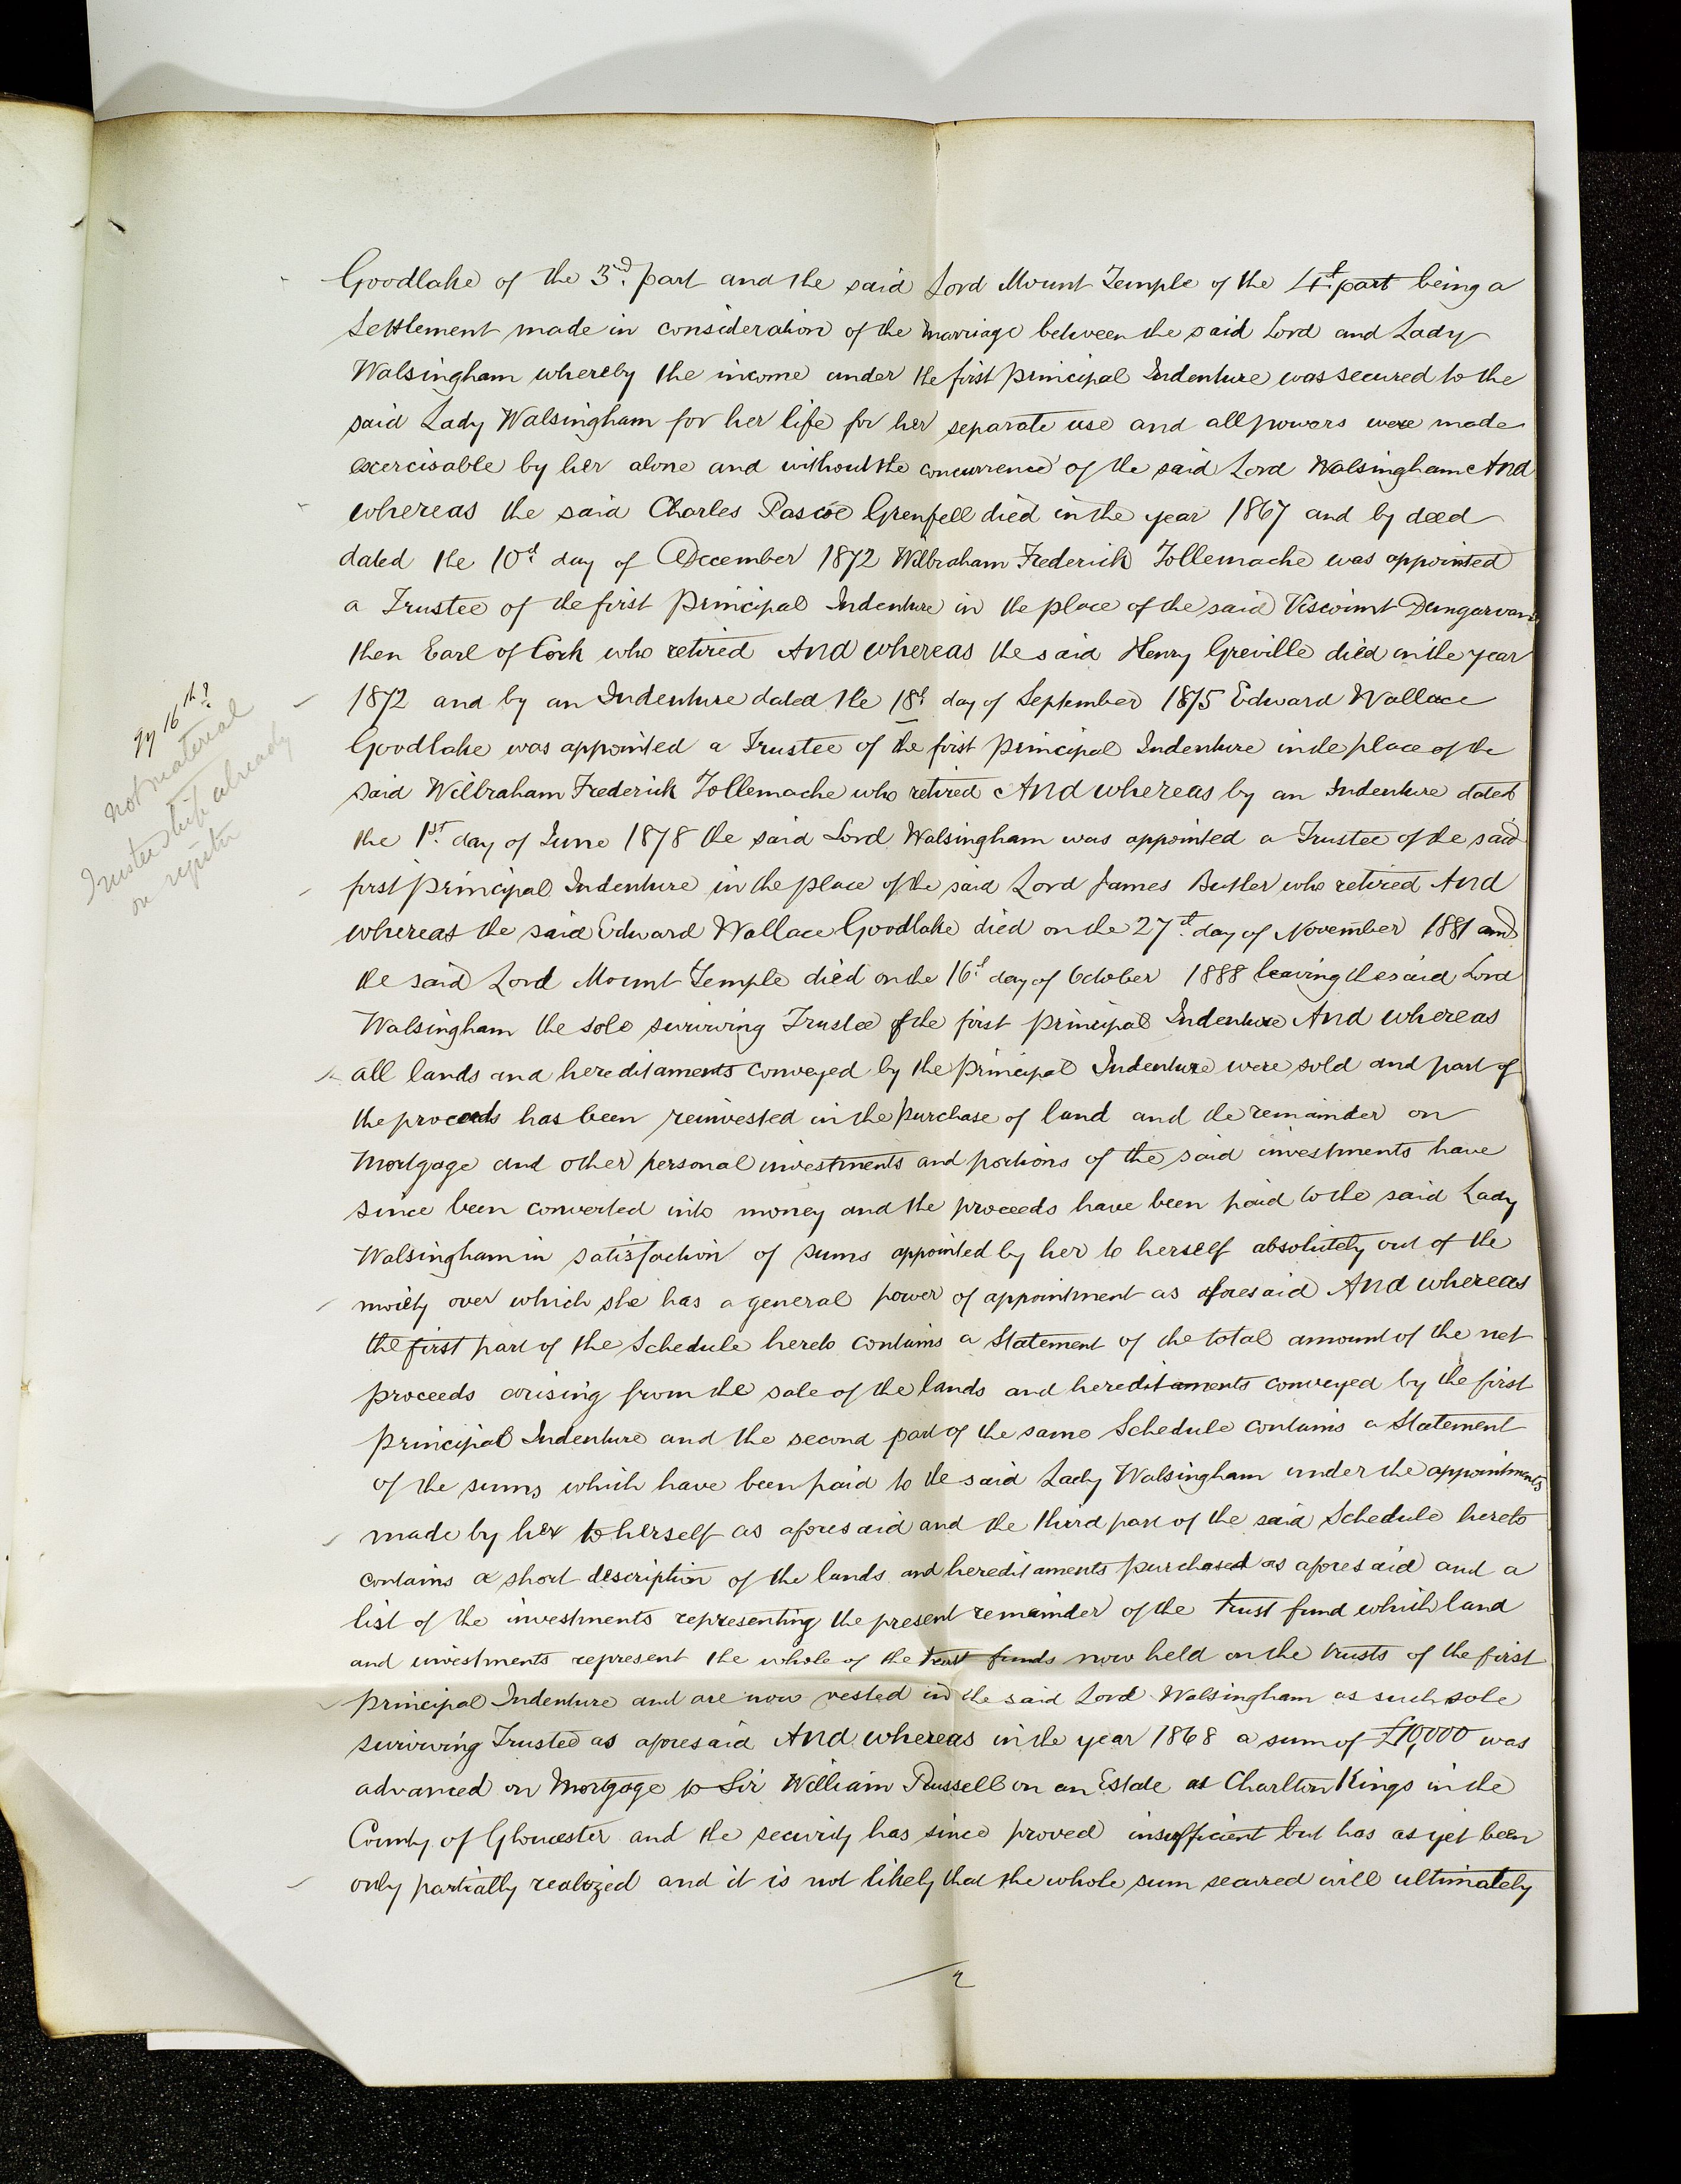 Goodlake of the 3rd. part and the said Lord Mount Temple of the 4th. part being a
Settlement made in consideration of the marriage between the said Lord and Lady
Walsingham whereby the income under the first principal Indenture was secured to the
said Lady Walsingham for her life for her separate use and all powers were made
exercisable by her alone and without the concurrence of the said Lord Walsingham And
whereas the said Charles Pascoe Grenfell died in the year 1867 and by deed
dated the 10th day of December 1872 Wilbraham Frederick Tollemache was appointed
a Trustee of the first Principal Indenture in the place of the said Viscount Dungarvan
then Earl of Cork who retired And whereas the said Henry Greville died in the year
1872 and by an Indenture dated the 18th day of September 1875 Edward Wallace
Qy 16th?
not material
Trusteeship already
on register
Goodlake was appointed a Trustee of the first principal Indenture in the place of the
said Wilbraham Frederick Tollemache who retired And whereas by an Indenture dated
the 1st. day of June 1878 the said Lord Walsingham was appointed a Trustee of the said
first principal Indenture in the place of the said Lord James Butler who retired And
whereas the said Edward Wallace Goodlake died on the 27th. day of November 1881 and
the said Lord Mount Temple died on the 16th day of October 1888 leaving the said Lord
Walsingham the sole surviving Trustee of the first principal Indenture And whereas
all lands and hereditaments conveyed by the principal Indenture were sold and part of
the proceeds has been reinvested in the purchase of land and the remainder on
Mortgage and other personal investments and portions of the said investments have
since been converted into money and the proceeds have been paid to the said Lady
Walsingham in satisfaction of sums appointed by her to herself absolutely out of the
moiety over which she has a general power of appointment as aforesaid And whereas
the first part of the Schedule hereto contains a Statement of the total amount of the net
proceeds arising from the sale of the lands and hereditaments conveyed by the first
principal Indenture and the second part of the same Schedule contains a Statement
of the sums which have been paid to the said Lady Walsingham under the appointments
made by her to herself as aforesaid and the third part of the said Schedule hereto
contains a short description of the lands and hereditaments purchased as aforesaid and a
list of the investments representing the present remainder of the trust fund which land
and investments represent the whole of the trust funds now held on the trusts of the first
principal Indenture and are now vested in the said Lord Walsingham as such sole
surviving Trustee as aforesaid And whereas in the year 1868 a sum of £10,000 was
advanced on Mortgage to Sir William Russell on an Estate at Charlton Kings in the
County of Gloucester and the security has since proved insufficient but has as yet been
only partially realized and it is not likely that the whole sum secured will ultimately
2